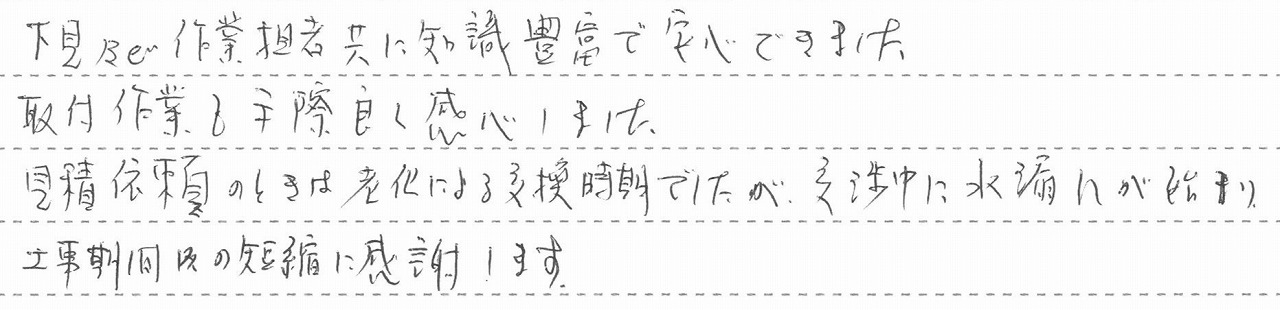 下見及び作業担者共に知識豊富で安心できました
取付作業も手際良く感心しました
見積依頼のときは老化による交換時期でしたが、交渉中に水漏れが始まり
工事期間の短縮に感謝します